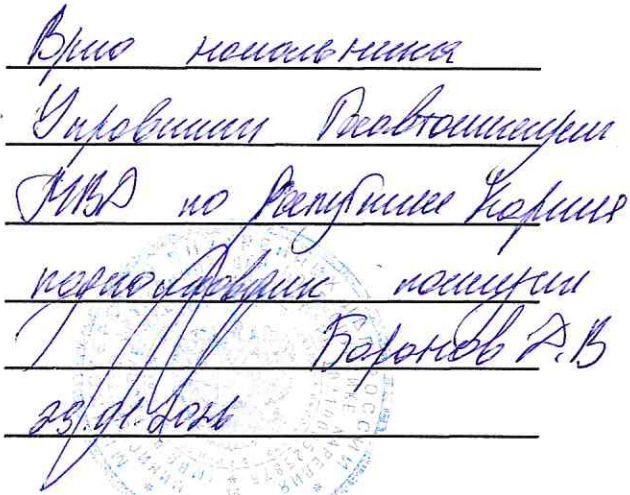 Врио начальника
Управления Госавтоинспекции
МВД по Республике Карелия
подполковник полиции
Баранов Д.В
29.01.2026